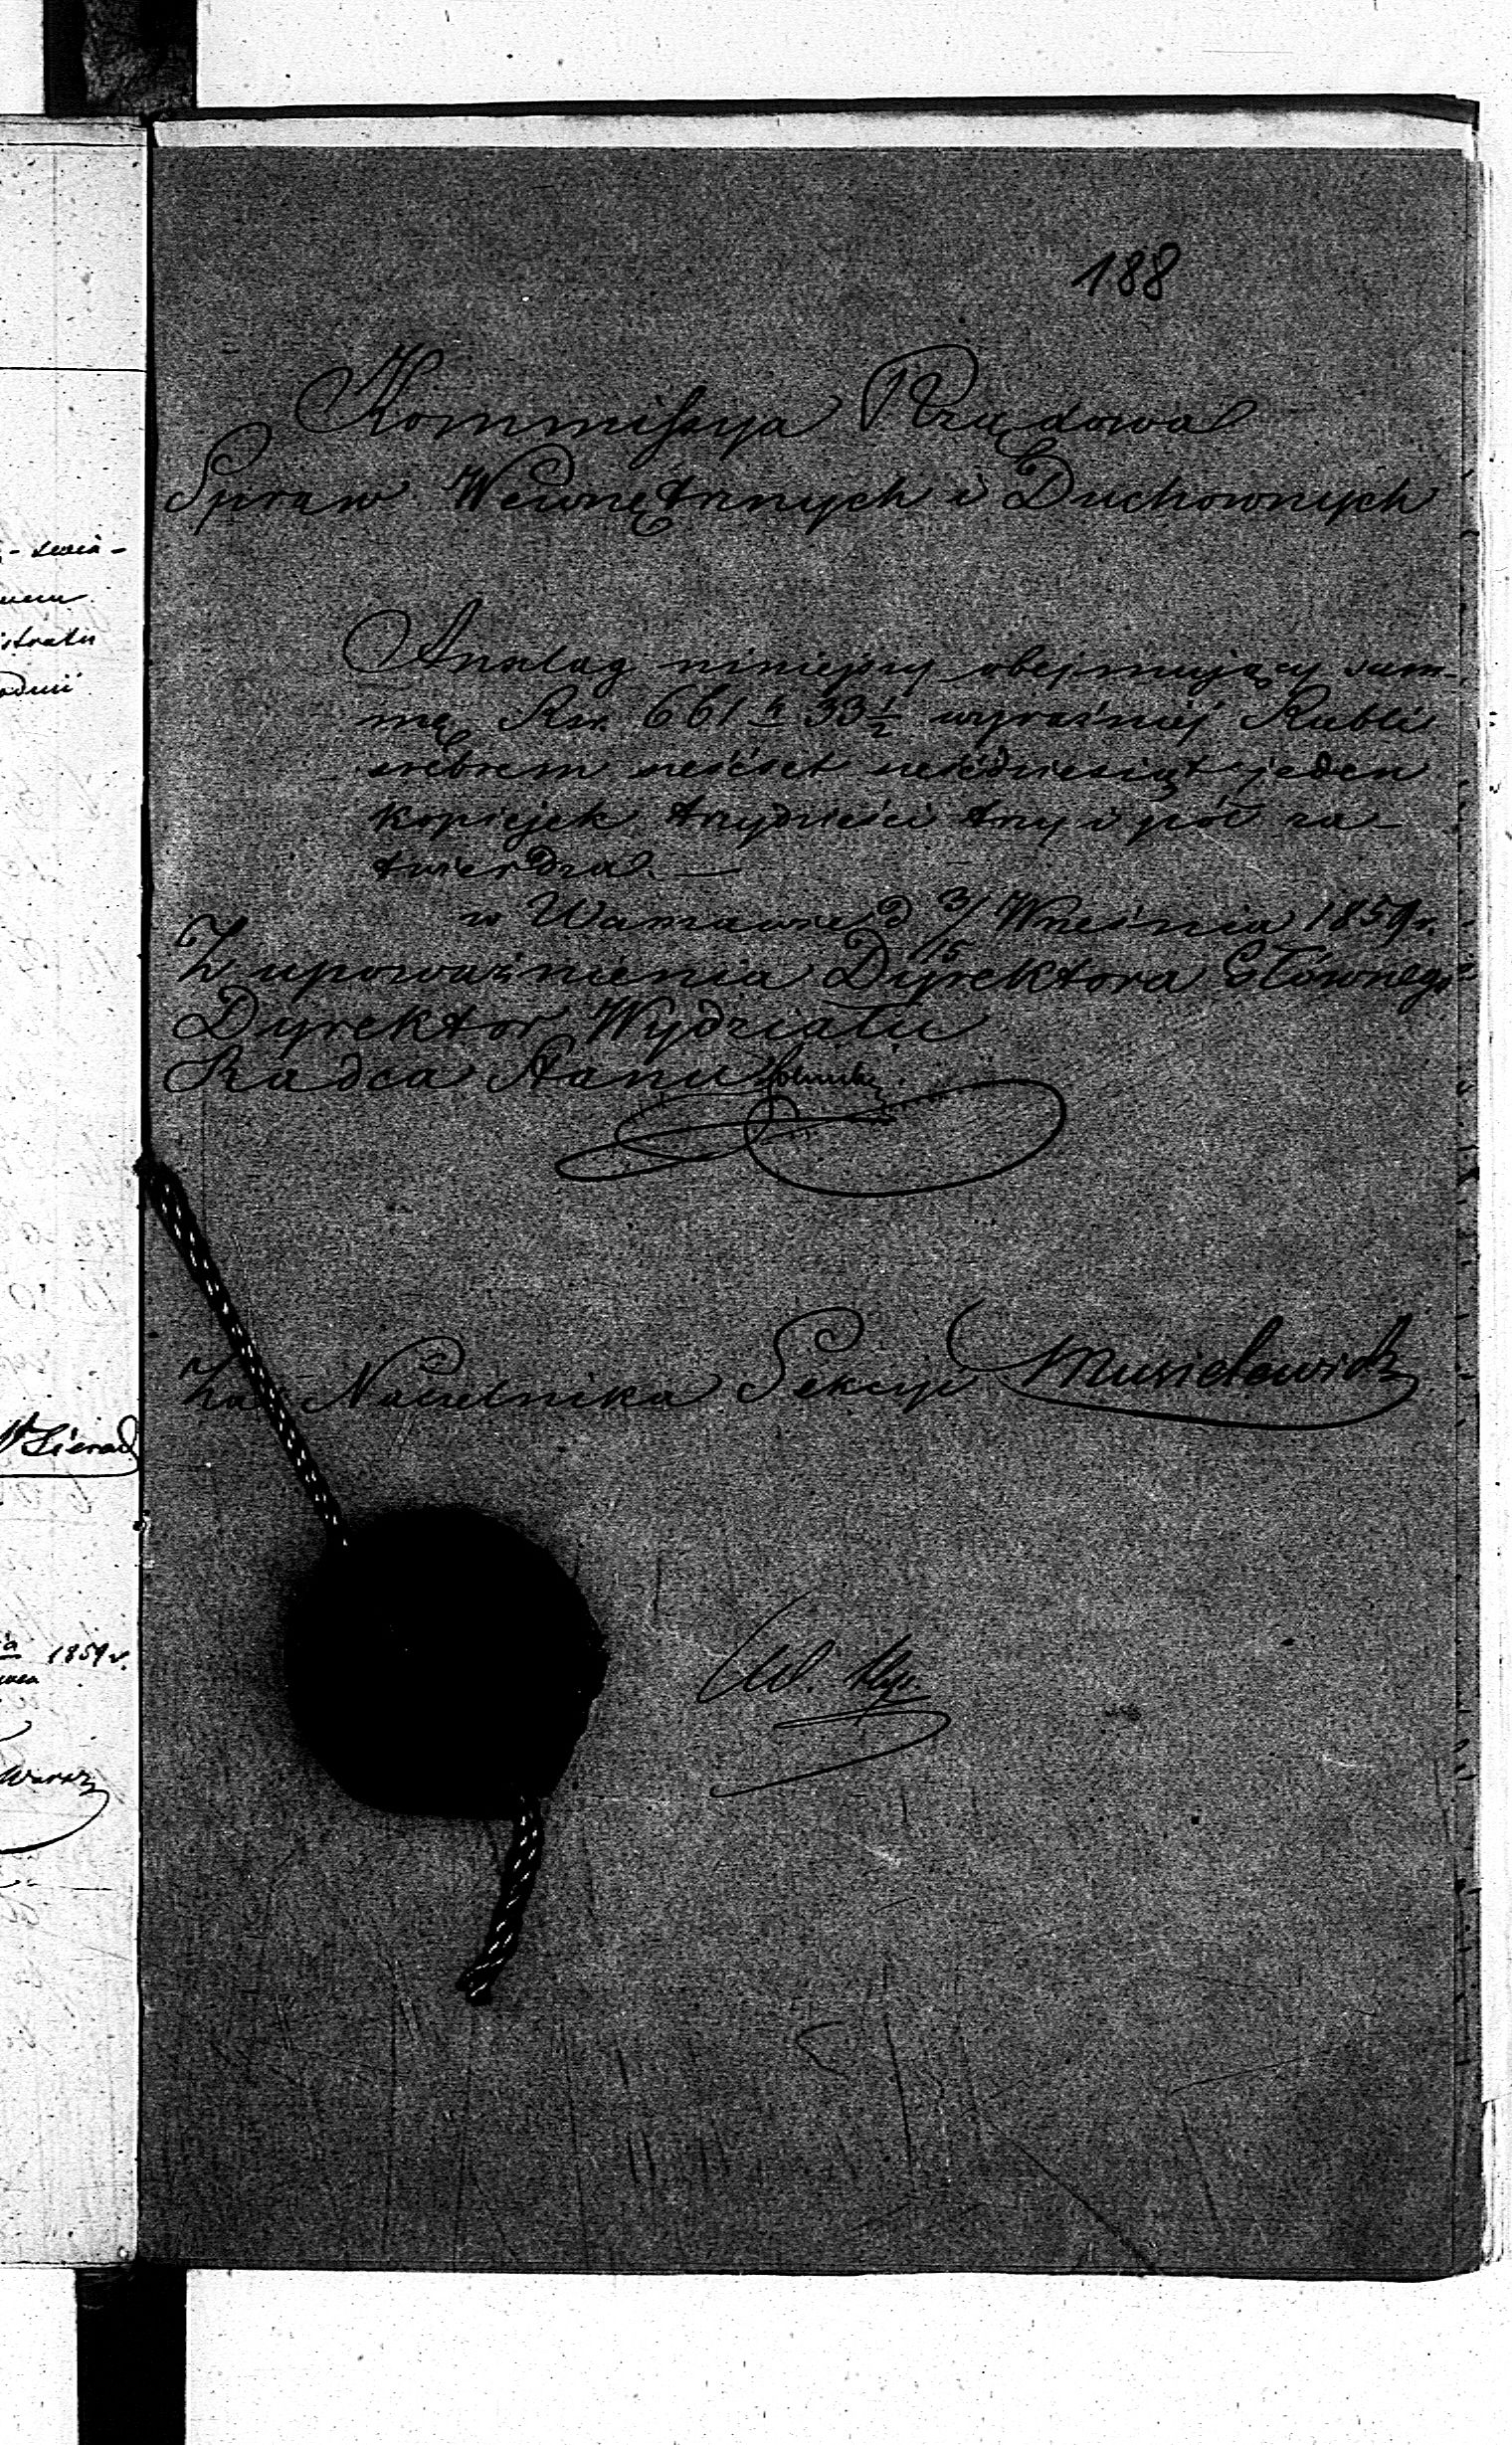 188
Kommissya Rządowa
Spraw Wewnętrznych i Duchownych
Anszlag niniejszy obejmujący sum-
mę Rsr. 661 k 33 1/2 wyraźniej Rubli
srebrem sześćset sześćdziesiąt jeden
kopiejek trzydzieści trzy i pół za-
twierdza. —
w Warszawie d 3/15 Września 1859 r.
Z upoważnienia Dyrektora Głównego
Dyrektor Wydziału
Radca Stanu
Za Naczelnika Sekcyi
1859 r.